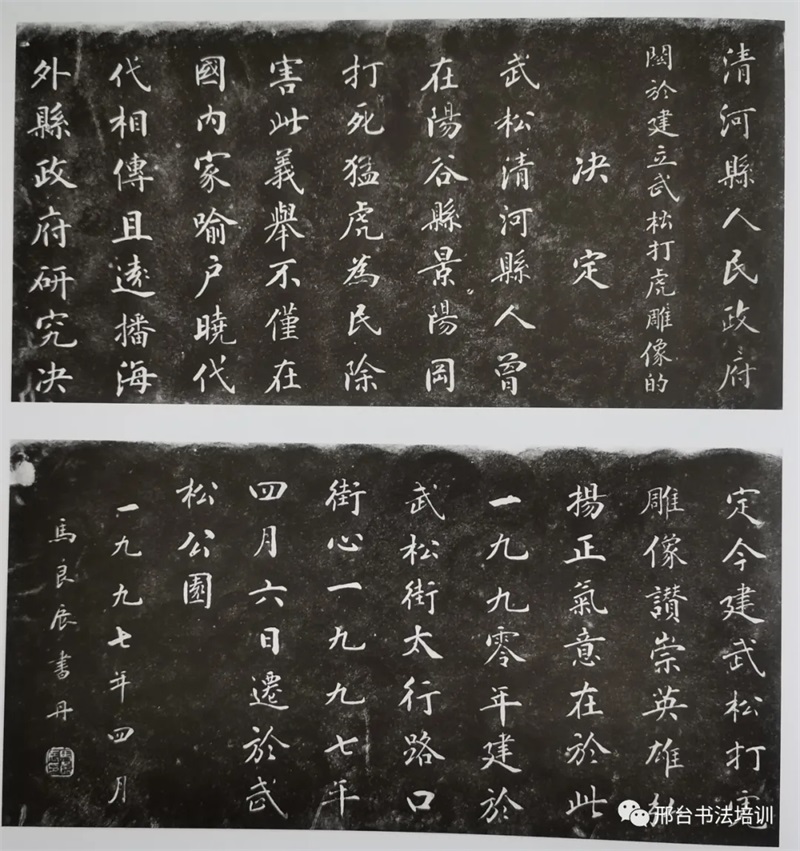 清河縣人民政府
關於建立武松打虎雕像的
决定
武松清河縣人曾
在陽谷縣景陽岡
打死猛虎為民除
害此義舉不僅在
國内家喻户曉代
代相傳且遠播海
外縣政府研究决
定今建武松打虎
雕像讃崇英雄
揚正氣意在於此
一九九零年建於
武松街太行路口
街心一九九七年
四月六日遷於武
松公園
一九九七年四月
馬良辰書丹
邢台书法培训